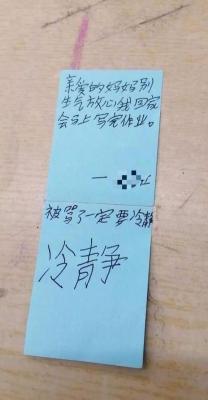 亲爱的妈妈别
生气放心我回家
会马上写完作业。
被骂了一定要冷静
冷静